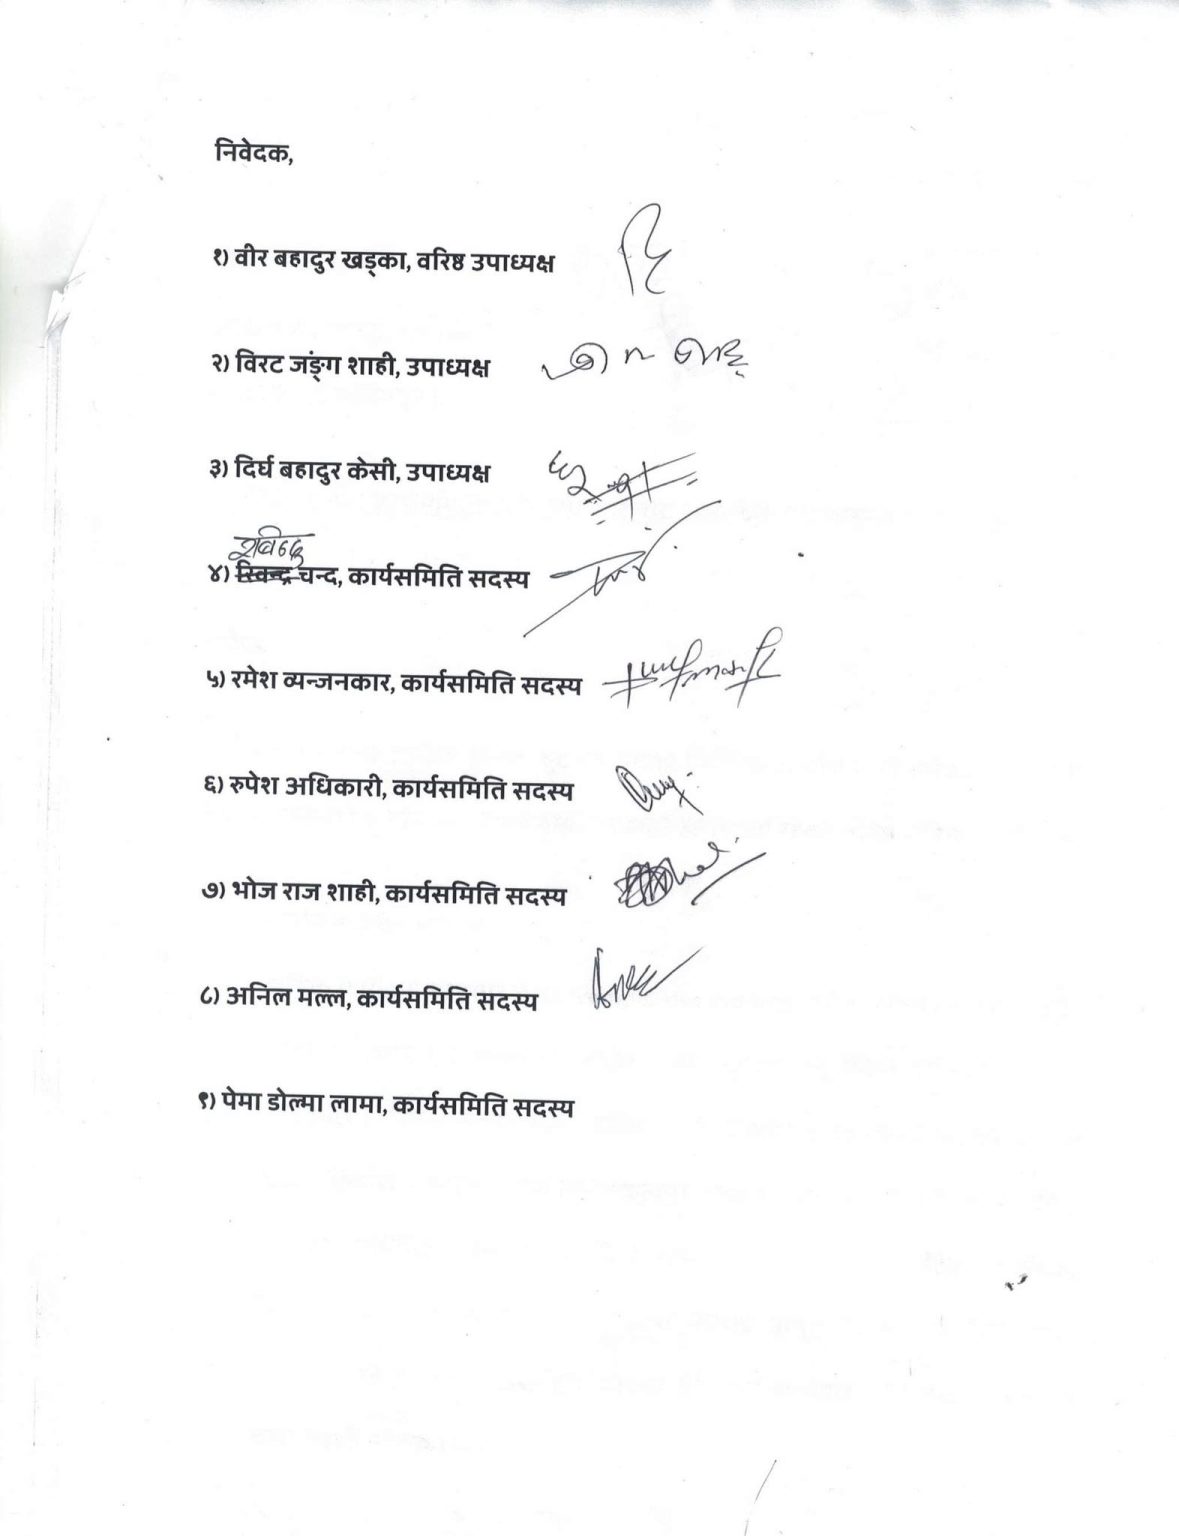 निवेदक,
१) वीर बहादुर खड्का, वरिष्ठ उपाध्यक्ष
२) विरट जंङ्ग शाही, उपाध्यक्ष
३) दिर्घ बहादुर केसी, उपाध्यक्ष
४) रविन्द्र चन्द, कार्यसमिति सदस्य
५) रमेश व्यन्जनकार, कार्यसमिति सदस्य
६) रुपेश अधिकारी, कार्यसमिति सदस्य
७) भोज राज शाही, कार्यसमिति सदस्य
८) अनिल मल्ल, कार्यसमिति सदस्य
९) पेमा डोल्मा लामा, कार्यसमिति सदस्य